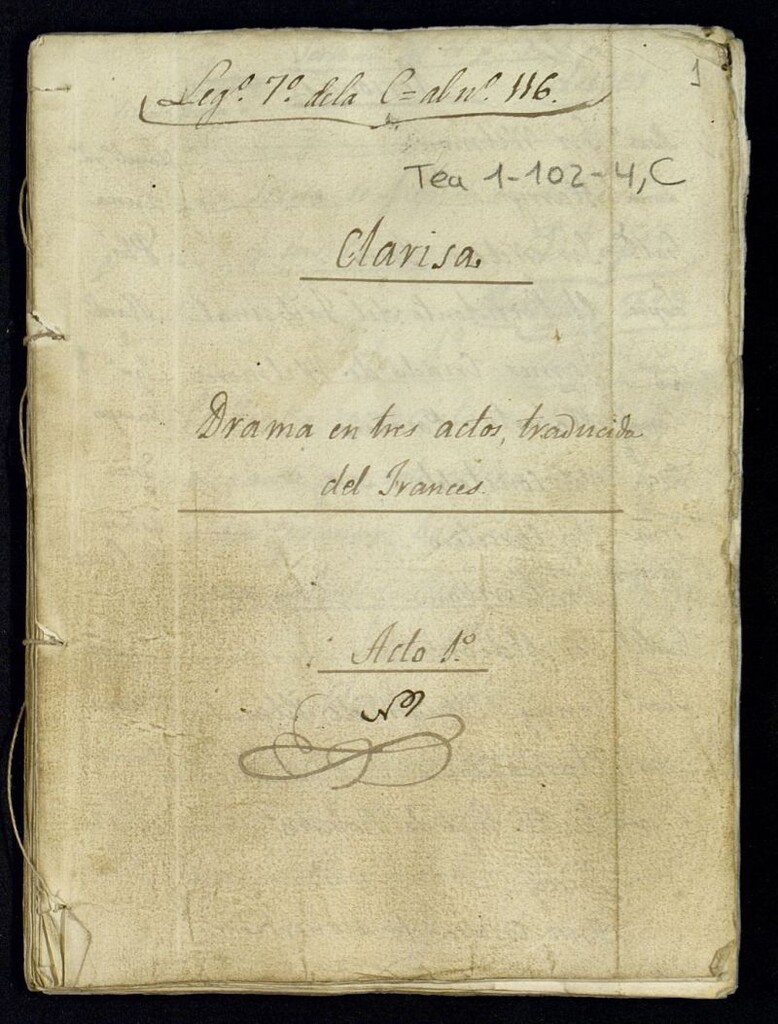 1
Legº. 7º. de la C= al nº. 116.
Tea 1-102-4, C
Clarisa
Drama en tres actos, traducido
del Frances.
Acto 1º.